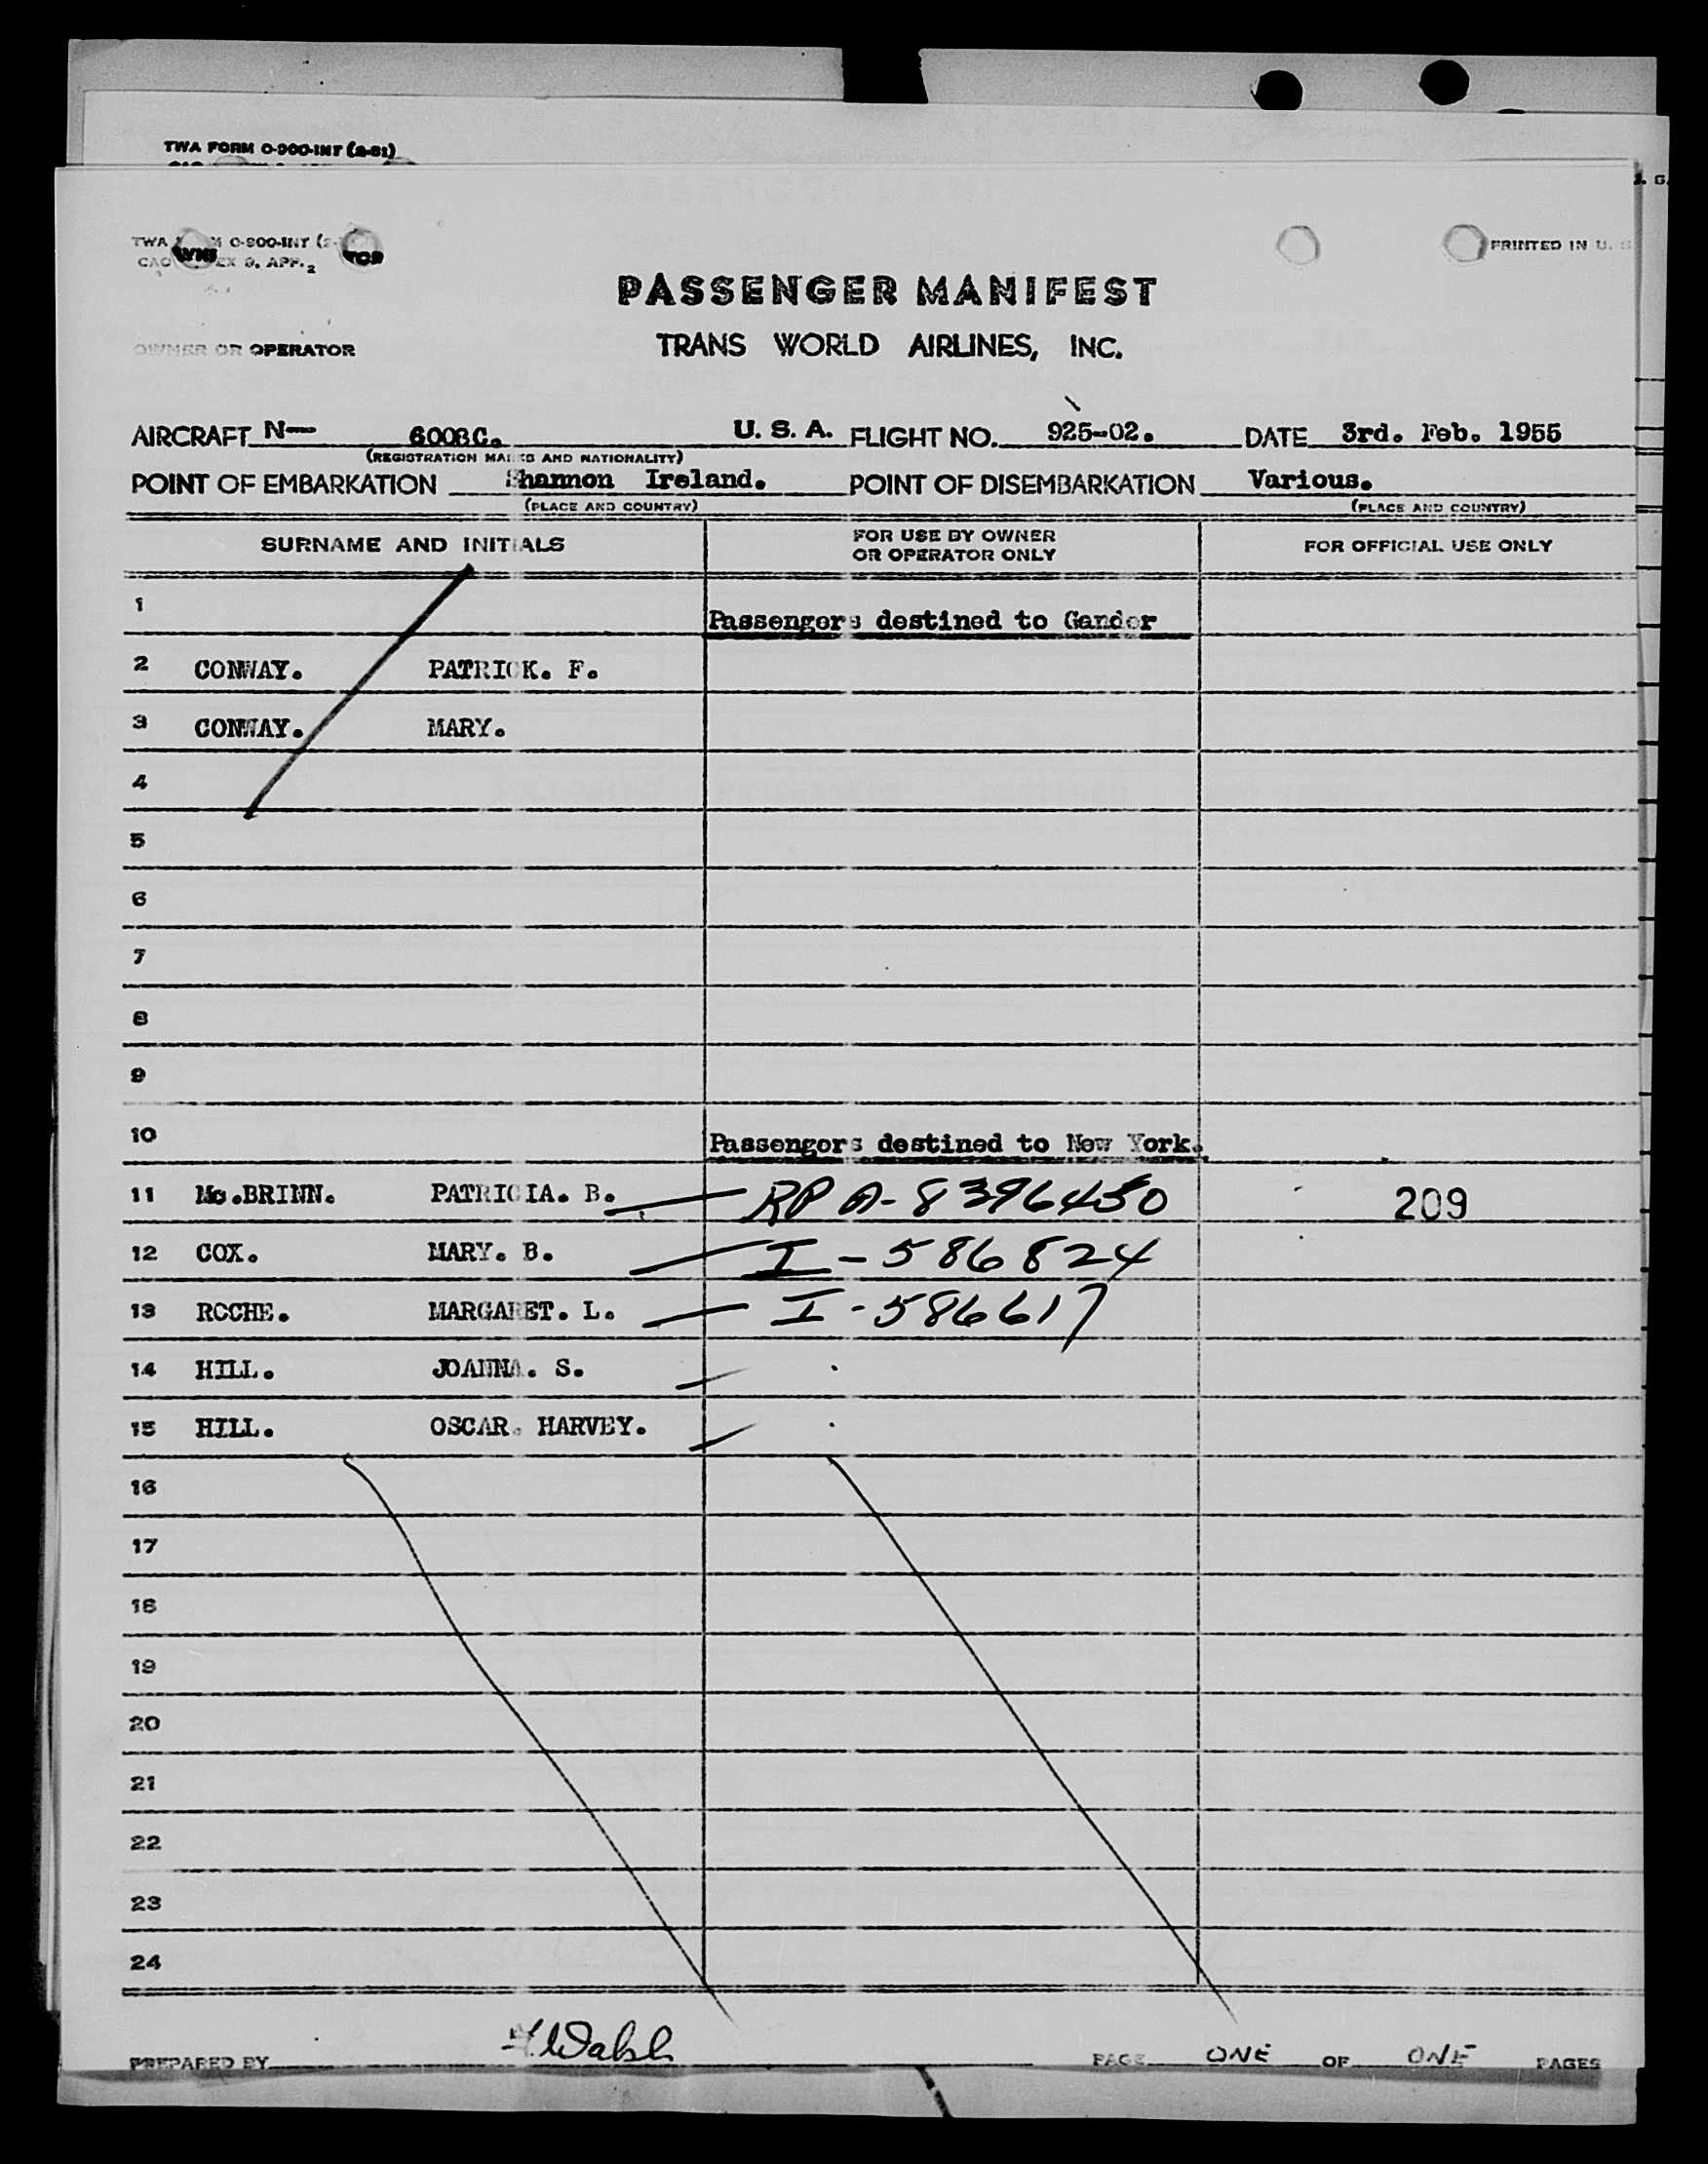 TWA FORM O-900-INT (2-51)
PRINTED IN U. S.
PASSENGER MANIFEST
OWNER OR OPERATOR
TRANS WORLD AIRLINES, INC.
AIRCRAFT N— 6008C. U. S. A. FLIGHT NO. 925-02. DATE 3rd. Feb. 1955
(REGISTRATION MARKS AND NATIONALITY)
POINT OF EMBARKATION Shannon Ireland. POINT OF DISEMBARKATION Various.
(PLACE AND COUNTRY) (PLACE AND COUNTRY)
SURNAME AND INITIALS FOR USE BY OWNER OR OPERATOR ONLY FOR OFFICIAL USE ONLY
1 Passengers destined to Gander
2 CONWAY. PATRICK. F.
3 CONWAY. MARY.
4
5
6
7
8
9
10 Passengers destined to New York.
11 Mc.BRINN. PATRICIA. B. RP A-8396450 209
12 COX. MARY. B. I-586824
13 ROCHE. MARGARET. L. I-586617
14 HILL. JOANNA. S.
15 HILL. OSCAR. HARVEY.
16
17
18
19
20
21
22
23
24
PREPARED BY Walsh PAGE ONE OF ONE PAGES